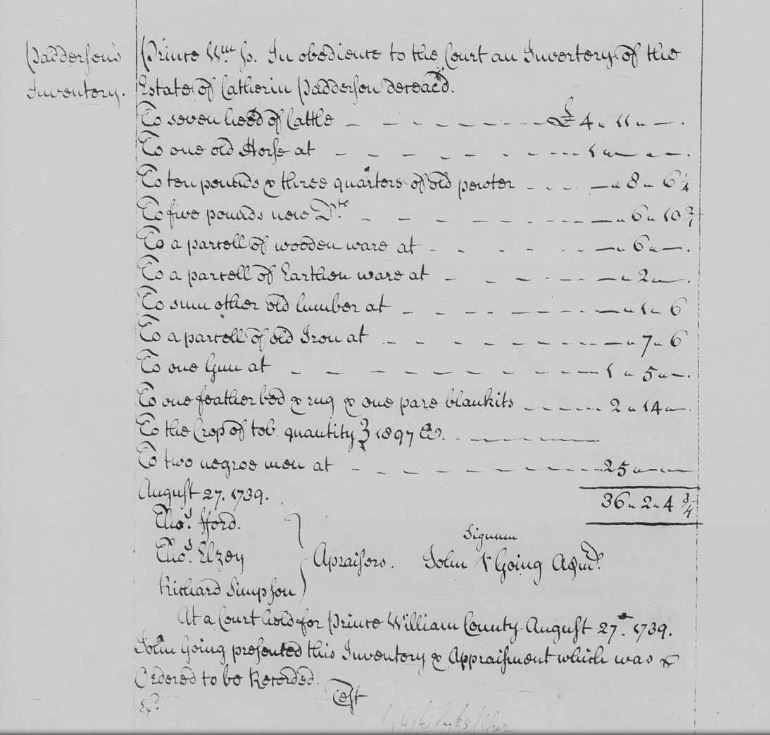 Padderson's
Inventory.
Prince Wm. Ss. In obedience to the Court an Inventery of the
Estate of Catherin Padderson deceas'd.
To seven heed of Cattle - - - - - - £4 " 11 " - .
To one old Horse at - - - - - - 1 " - " - .
To ten pounds & three quarters of old pewter - - - - " 8 " 6 1/4
To five pounds new Do. - - - - - - " 6 " 10 3/4
To a parcell of wooden ware at - - - - - - " 6 " - .
To a parcell of Earthen ware at - - - - - " 2 " - .
To sum other old lumber at - - - - - - " 1 " 6
To a parcell of old Iron at - - - - - - " 7 " 6
To one Gun at - - - - - - 1 " 5 " - .
To one feather bed & rug & one pare blankits - - - - 2 " 14 " - .
To the Crop of tob. quantity 1897 - - - - - -
To two negroe men at - - - - - - 25 " - " -
August 27. 1739.
36 " 2 " 4 3/4
Thos. fford.
Thos. Elzey
Richard Simpson
Apraisers.
Signum
John Going Admr.
At a Court held for Prince William County August 27th 1739.
John Going presented this Inventory & Appraisment which was
Ordered to be Recorded.
Test